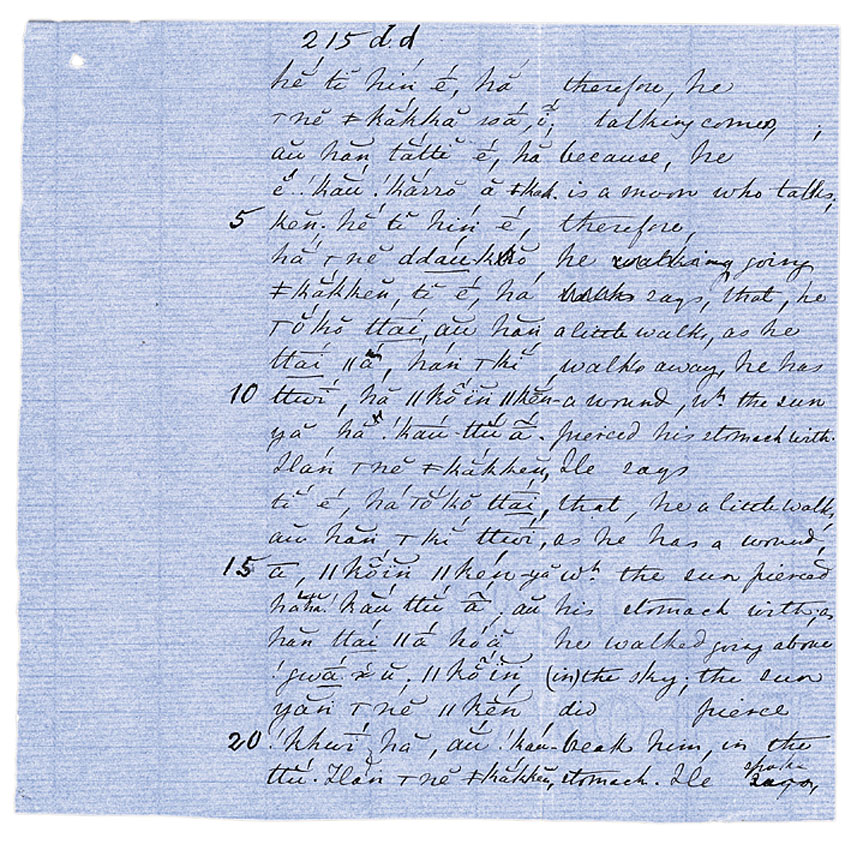 215 d.d
hĕ́ tĭ hin é, hắ therefore, he
⊤nĕ ǂkắkkă ssā́, ĭ̄; talking comes, ;
aŭ hăn tắttĭ é, hă because, he
ĕ́ !kăŭ !kárrŏ ā ǂkak- is a moon who talks,
5 kĕn. hĕ́ tĭ hin é, therefore,
hắ ⊤nĕ ddáŭ kŏ, he going
ǂkắkkĕn, tĭ é, hă says, that, he
⊤ŏ́kŏ ttai, aŭ hăn a little walks, as he
ttai ǁắ, hán ⊤kĭ walks away, he has
10 ttwī́, hă ǁkŏ́ĭn ǁkĕ̄n- a wound, wh. the sun
yă hă !kaŭ-ttŭ ā̆. pierced his stomach with.
Hán ⊤nĕ ǂkắkkĕn, He says
tĭ é, hă ⊤ŏ́kŏ ttai, that, he a little walks,
aŭ hăn ⊤kĭ ttwī́, as he has a wound,
15 ā, ǁkŏ́ĭn ǁkén-yă wh. the sun pierced
hă hă !kăŭ ttŭ ā̆, aŭ his stomach with; as
hăn ttai ǁắ hóă he walked going above
!gwā́ xŭ. ǁkŏ́ĭn (in) the sky; the sun
yăn ⊤nĕ ǁkĕ́n did pierce
20 !khwī́ hă, aŭ !kaŭ- beak him, in the
ttŭ. Hăn ⊤nĕ ǂkắkkĕn, stomach. He spoke says,